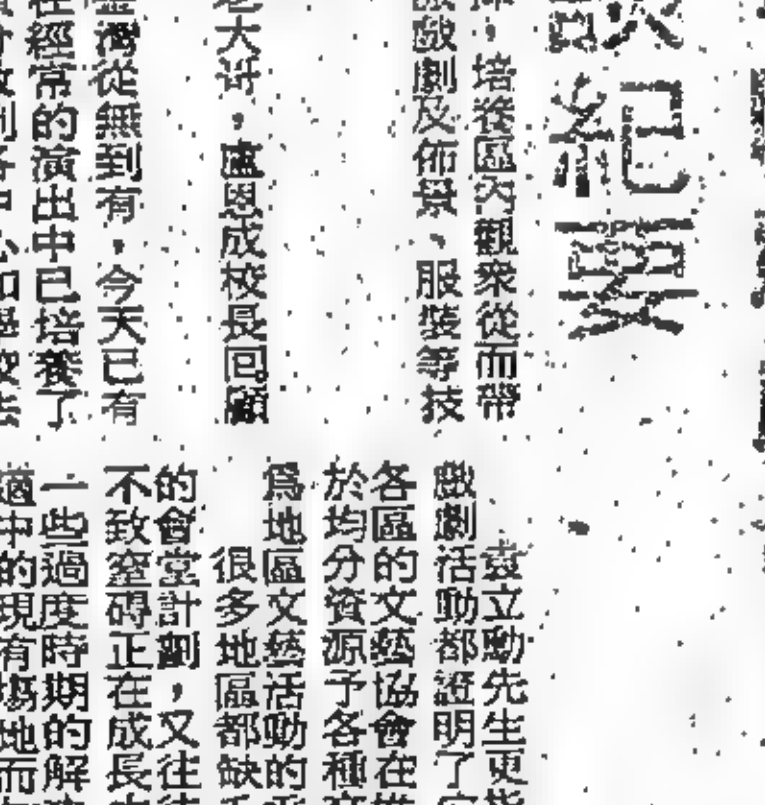 紀要
培養區內觀眾從而帶
戲劇及佈景、服裝等技
老大哥，盧恩成校長回顧
臺灣從無到有，今天已有
在經常的演出中已培養了
袁立勳先生更指
戲劇活動都證明了
各區的文藝協會在推
於均分資源予各種
為地區文藝活動的
很多地區都缺
的會堂計劃，又往往
不致窒碍正在成長
一些過度時期的解
適中的現有場地而